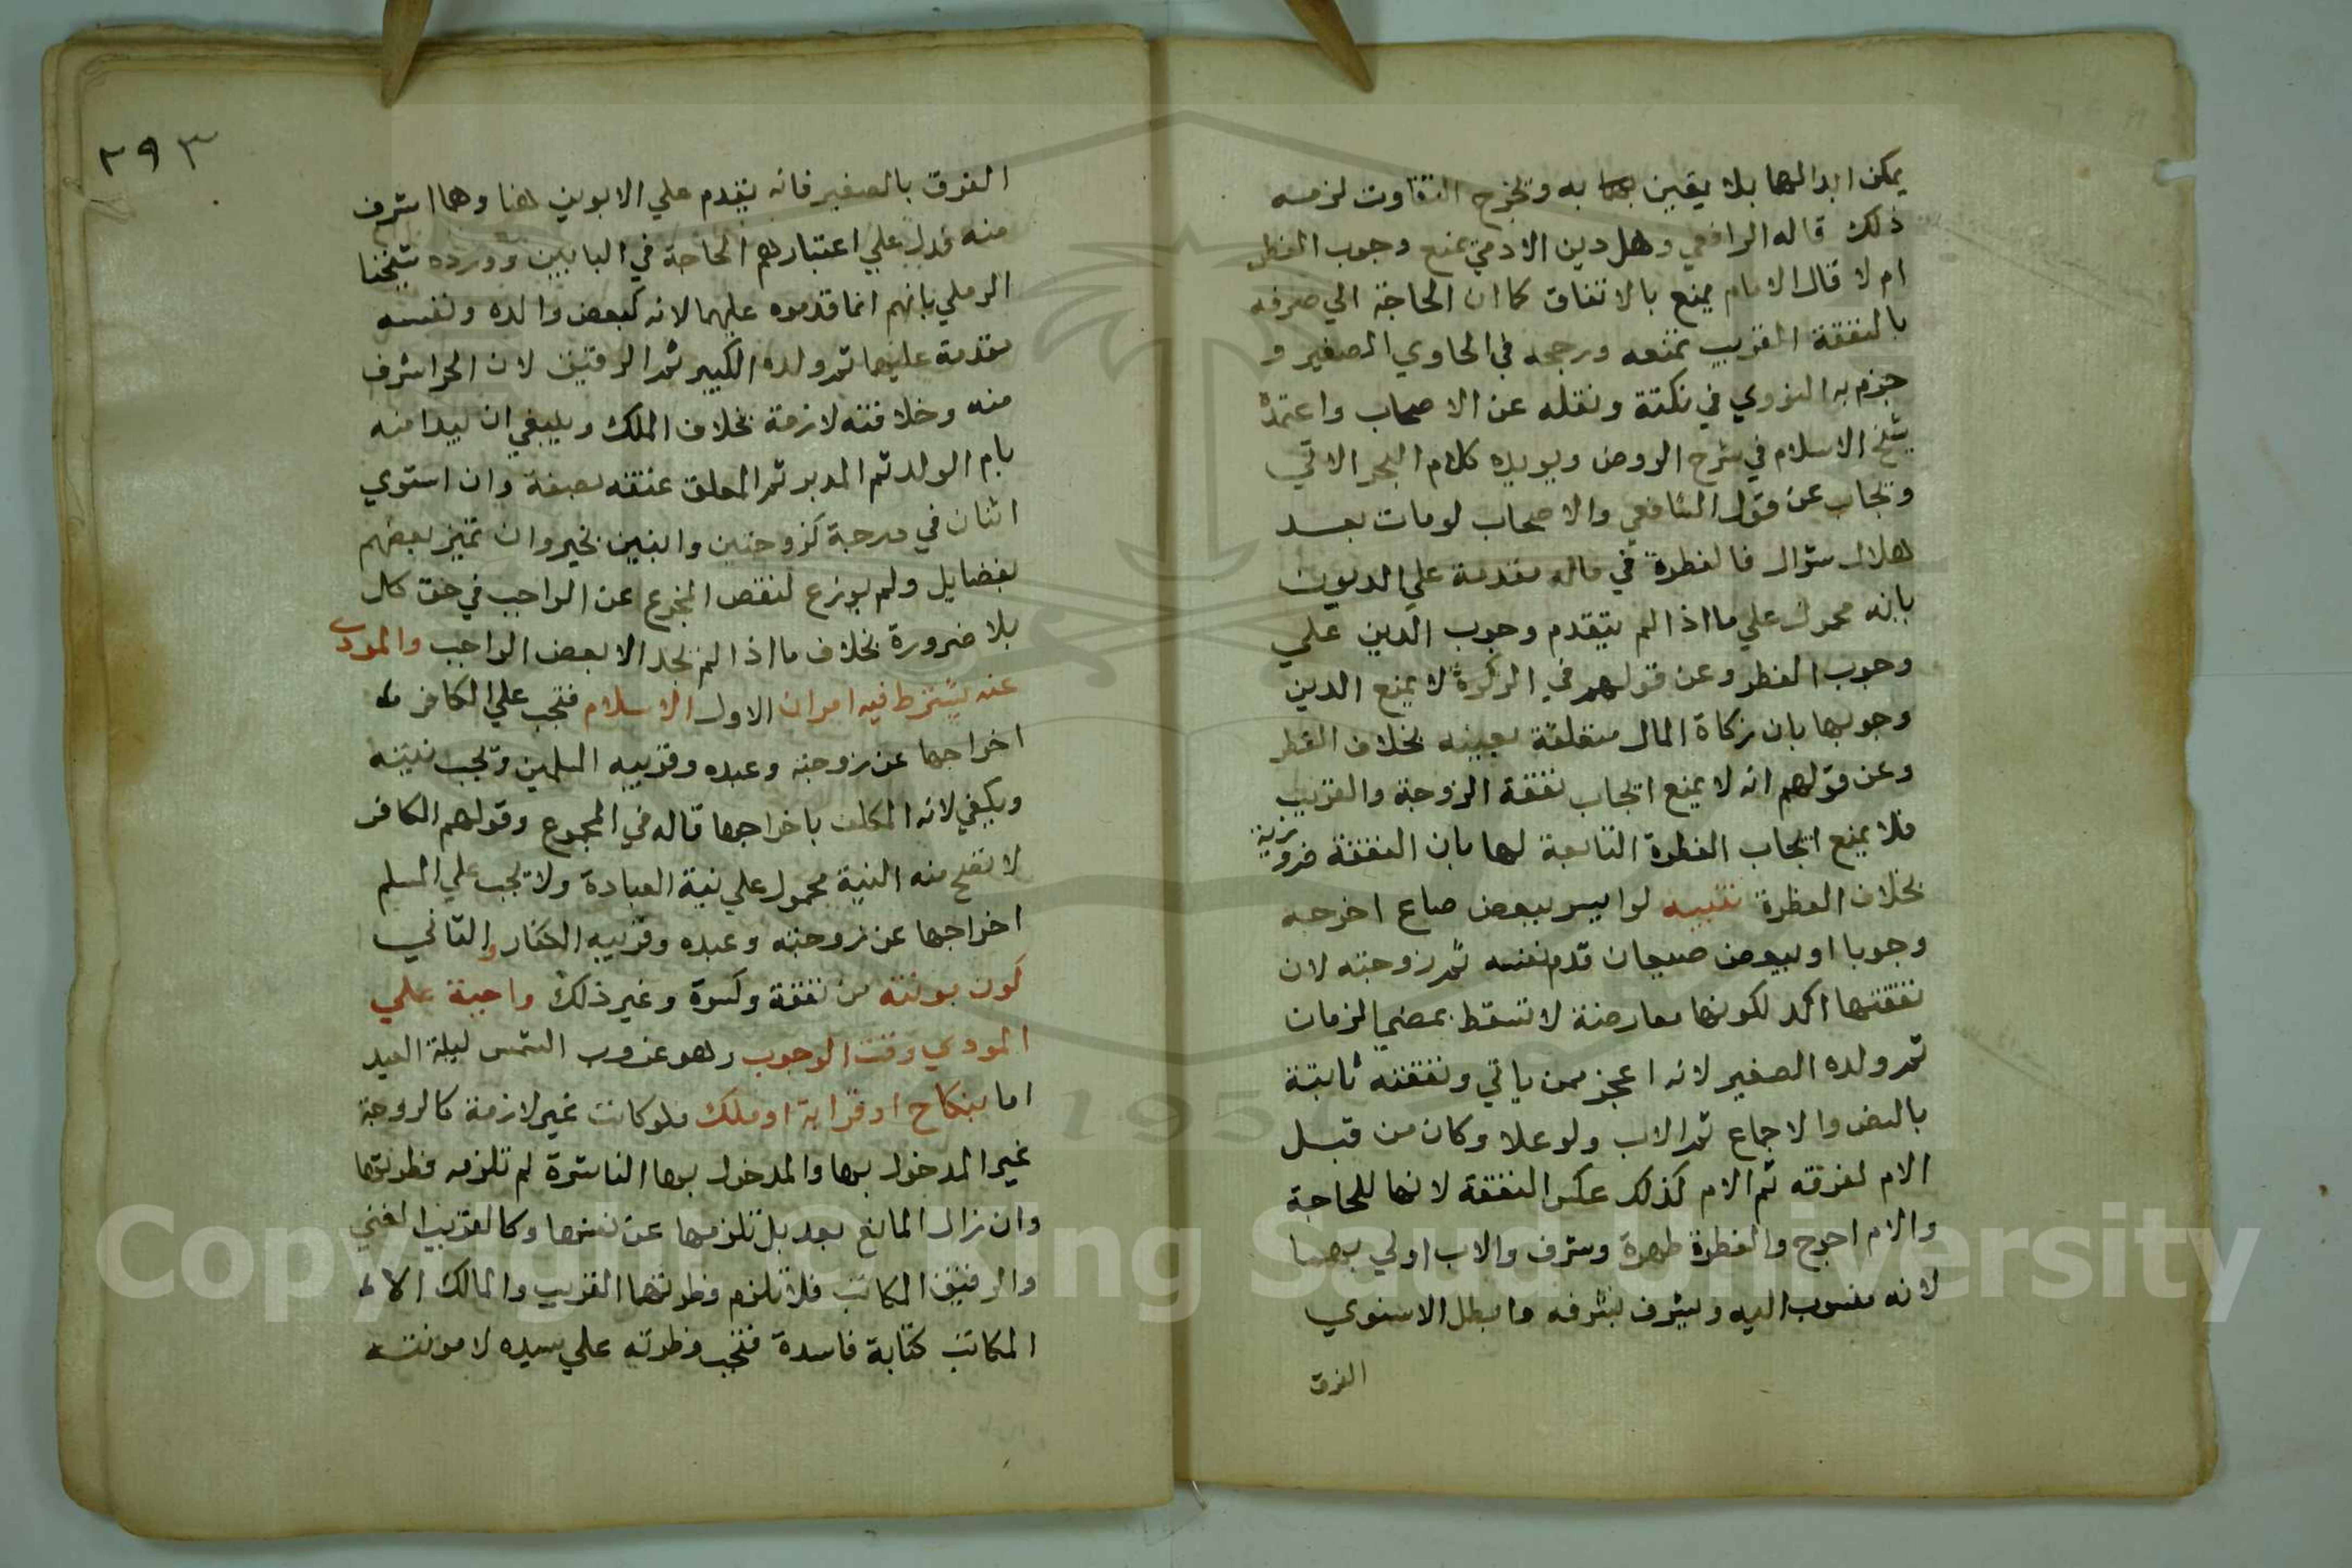 يمكن ابدالها بلايق به وتخرج التفاوت لزمه
ذلك قاله الرافعي وهل دين الادمي يمنع وجوب الفطر
ام لا قال الامام يمنع بالاتفاق كما ان الحاجة الي صرفه
بالنفقة القريب تمنعه ورجحه في الحاوي الصغير و
جزم به النووي في نكتة ونقله عن الاصحاب واعتمده
شيخ الاسلام في شرح الروض ويويده كلام البحر الاتي
ويجاب عن قول الشافعي والاصحاب لو مات بعد
هلال شوال فالفطرة في ماله مقدمة علي الديون
بانه محمول علي ما اذا لم يتقدم وجوب الدين علي
وجوب الفطر وعن قولهم في الزكوة لا يمنع الدين
وجوبها بان زكاة المال متعلقة بعينه بخلاف الفطر
وعن قولهم انه لا يمنع ايجاب نفقة الزوجة والقريب
فلا يمنع ايجاب الفطرة التابعة لها بان النفقة ضرورية
بخلاف الفطرة تنبيه لو ايسر ببعض صاع اخرجه
وجوبا او ببعض صيعان قدم نفسه ثم زوجته لان
نفقتها اكد لكونها معارضة لا تسقط بمضي الزمان
ثم ولده الصغير لانه اعجز ممن ياتي ونفقته ثابتة
بالنص والاجماع ثم الاب ولو علا وكان من قبل
الام لفرقه ثم الام كذلك عكس النفقة لانها للحاجة
والام احوج والفطرة طهرة وشرف والاب اولي بهما
لانه منسوب اليه ويشرف بشرفه وابطل الاسنوي
الفرق
٢٩٣
الفرق بالصغير فانه يقدم علي الابوين هنا وهما اشرف
منه فدل علي اعتبارهم الحاجة في البابين ورده شيخنا
الرملي بانهم انما قدموه عليهما لانه كبعض والده ونفسه
مقدمة عليهما ثم ولده الكبير ثم الرقيق لان الحر اشرف
منه وخلافته لازمة بخلاف الملك وينبغي ان يبدا منه
بام الولد ثم المدبر ثم المعلق عتقه بصفة وان استوي
اثنان في درجة كزوجتين وابنين بخير وان تميز بعضهم
بفضايل ولم يوزع لنقص المخرج عن الواجب في حق كل
بلا ضرورة بخلاف ما اذا لم يجد الا بعض الواجب والمودي
عنه يشترط فيه امران الاول الاسلام فتجب علي الكافر
اخراجها عن زوجته وعبده وقريبه المسلمين وتجب نيته
ويكفي لانه المكلف باخراجها قاله في المجموع وقولهم الكافر
لا تصح منه النية محمول علي نية العبادة ولا تجب علي المسلم
اخراجها عن زوجته وعبده وقريبه الكفار والثاني
كون مونته من نفقة وكسوة وغير ذلك واجبة علي
المودي وقت الوجوب وهو غروب الشمس ليلة العيد
اما بنكاح او قرابة او ملك فلو كانت غير لازمة كالزوجة
غير المدخول بها والمدخول بها الناشزة لم تلزمه فطرتها
وان زال المانع بعد بل تلزمها عن نفسها وكالقريب الغني
والرقيق المكاتب فلا تلزم فطرتهما القريب والمالك الا
المكاتب كتابة فاسدة فتجب فطرته علي سيده لا مونته
Copyright © King Saud University
1957